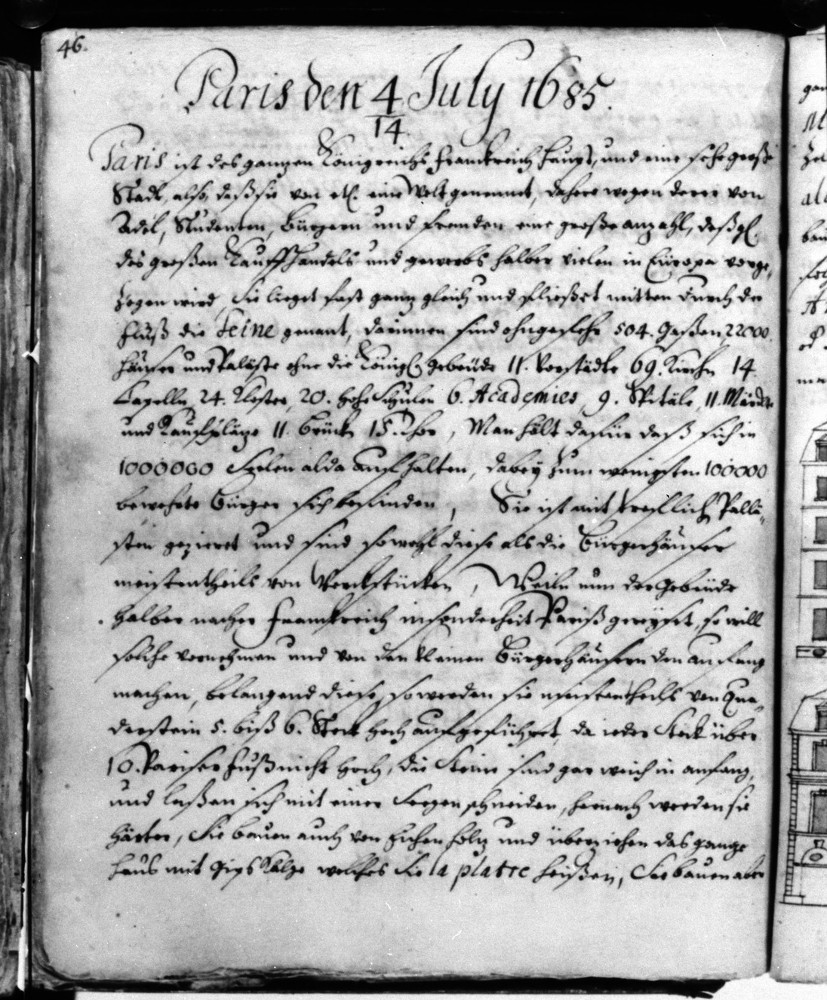 46.
Paris den 4/14 July 1685.
Paris ist des ganzen Königreichs Franckreich haupt, und eine sehr große
Stadt, also, daß sie von etl. eine Welt genennet, dahero wegen derer von
Adel, Studenten, Bürgern und fremden eine große anzahl, deßgl.
des großen Kauffhandels und gewerbs halber vielen in Europa vorge,
zogen wird, Sie lieget fast ganz gleich und fließet mitten durch der
fluß die Seine genant, darinnen sind ohngefehr 504. Gaßen, 22000.
häuser und Paläste ohne die Königl. gebeude 11. Vorstädte 69. Kirchn 14
Capelln, 24. Klöster, 20. hohe Schulen 6. Academies, 9. Spitäle, 11. Märckte
und 11. Brück 15. , Man hält dafür daß sich in
1000000 Seelen alda auffhalten, dabey zum wenigsten 100000
bewehrte Bürger sich befinden, Sie ist mit trefflich Pallä-
sten gezieret und sind sowohl diese als die Bürgerhäuser
meistentheils von Werckstücken, Weiln nun der Gebeude
halber nacher Franckreich insonderheit Pariß gereyset, so will
solche vornehmen und von den kleinen Bürgerhäusern den anfang
machen, belangend diese, so werden sie meistentheils von Qua-
derstein 5. biß 6. Stock hoch auffgeführet, da ieder Stock über
10. Pariser fuß nicht hoch, die Steine sind gar weich in anfang,
und laßen sich mit einer Seegen schneiden, hernach werden sie
härter, Sie bauen auch von Eichen holz und überziehen das gantze
haus mit Gips Kalge welches Sie la platre heißen, Sie bauen aber